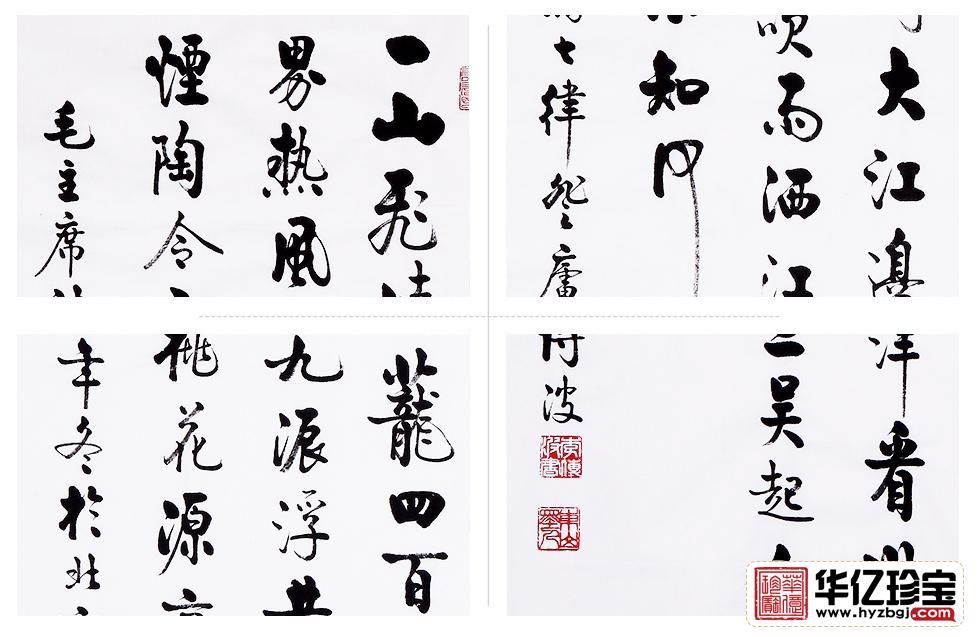 一山飛
界熱風
煙陶令
毛主席
大江邊
吹雨洒江
知何
七律登廬
蘢四百
九派浮
桃花源
年冬於北
洋看
三吴起
波
华亿珍宝
www.hyzbgj.com